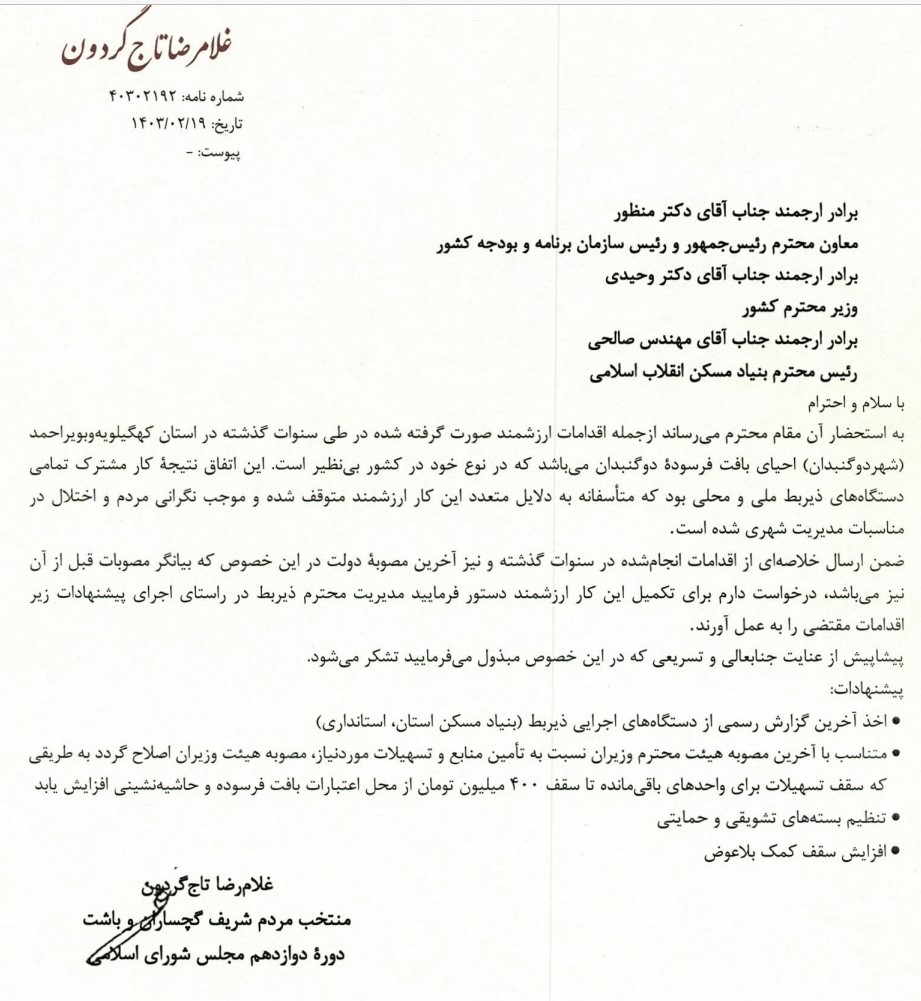 غلامرضا تاج گردون
شماره نامه: ۴۰۳۰۲۱۹۲
تاریخ: ۱۴۰۳/۰۲/۱۹
پیوست: -
برادر ارجمند جناب آقای دکتر منظور
معاون محترم رئیس‌جمهور و رئیس سازمان برنامه و بودجه کشور
برادر ارجمند جناب آقای دکتر وحیدی
وزیر محترم کشور
برادر ارجمند جناب آقای مهندس صالحی
رئیس محترم بنیاد مسکن انقلاب اسلامی
با سلام و احترام
به استحضار آن مقام محترم می‌رساند ازجمله اقدامات ارزشمند صورت گرفته شده در طی سنوات گذشته در استان کهگیلویه‌وبویراحمد
(شهردوگنبدان) احیای بافت فرسودهٔ دوگنبدان می‌باشد که در نوع خود در کشور بی‌نظیر است. این اتفاق نتیجهٔ کار مشترک تمامی
دستگاه‌های ذیربط ملی و محلی بود که متأسفانه به دلایل متعدد این کار ارزشمند متوقف شده و موجب نگرانی مردم و اختلال در
مناسبات مدیریت شهری شده است.
ضمن ارسال خلاصه‌ای از اقدامات انجام‌شده در سنوات گذشته و نیز آخرین مصوبهٔ دولت در این خصوص که بیانگر مصوبات قبل از آن
نیز می‌باشد، درخواست دارم برای تکمیل این کار ارزشمند دستور فرمایید مدیریت محترم ذیربط در راستای اجرای پیشنهادات زیر
اقدامات مقتضی را به عمل آورند.
پیشاپیش از عنایت جنابعالی و تسریعی که در این خصوص مبذول می‌فرمایید تشکر می‌شود.
پیشنهادات:
• اخذ آخرین گزارش رسمی از دستگاه‌های اجرایی ذیربط (بنیاد مسکن استان، استانداری)
• متناسب با آخرین مصوبه هیئت محترم وزیران نسبت به تأمین منابع و تسهیلات موردنیاز، مصوبه هیئت وزیران اصلاح گردد به طریقی
که سقف تسهیلات برای واحدهای باقی‌مانده تا سقف ۴۰۰ میلیون تومان از محل اعتبارات بافت فرسوده و حاشیه‌نشینی افزایش یابد
• تنظیم بسته‌های تشویقی و حمایتی
• افزایش سقف کمک بلاعوض
غلام‌رضا تاج‌گردون
منتخب مردم شریف گچساران و باشت
دورهٔ دوازدهم مجلس شورای اسلامی